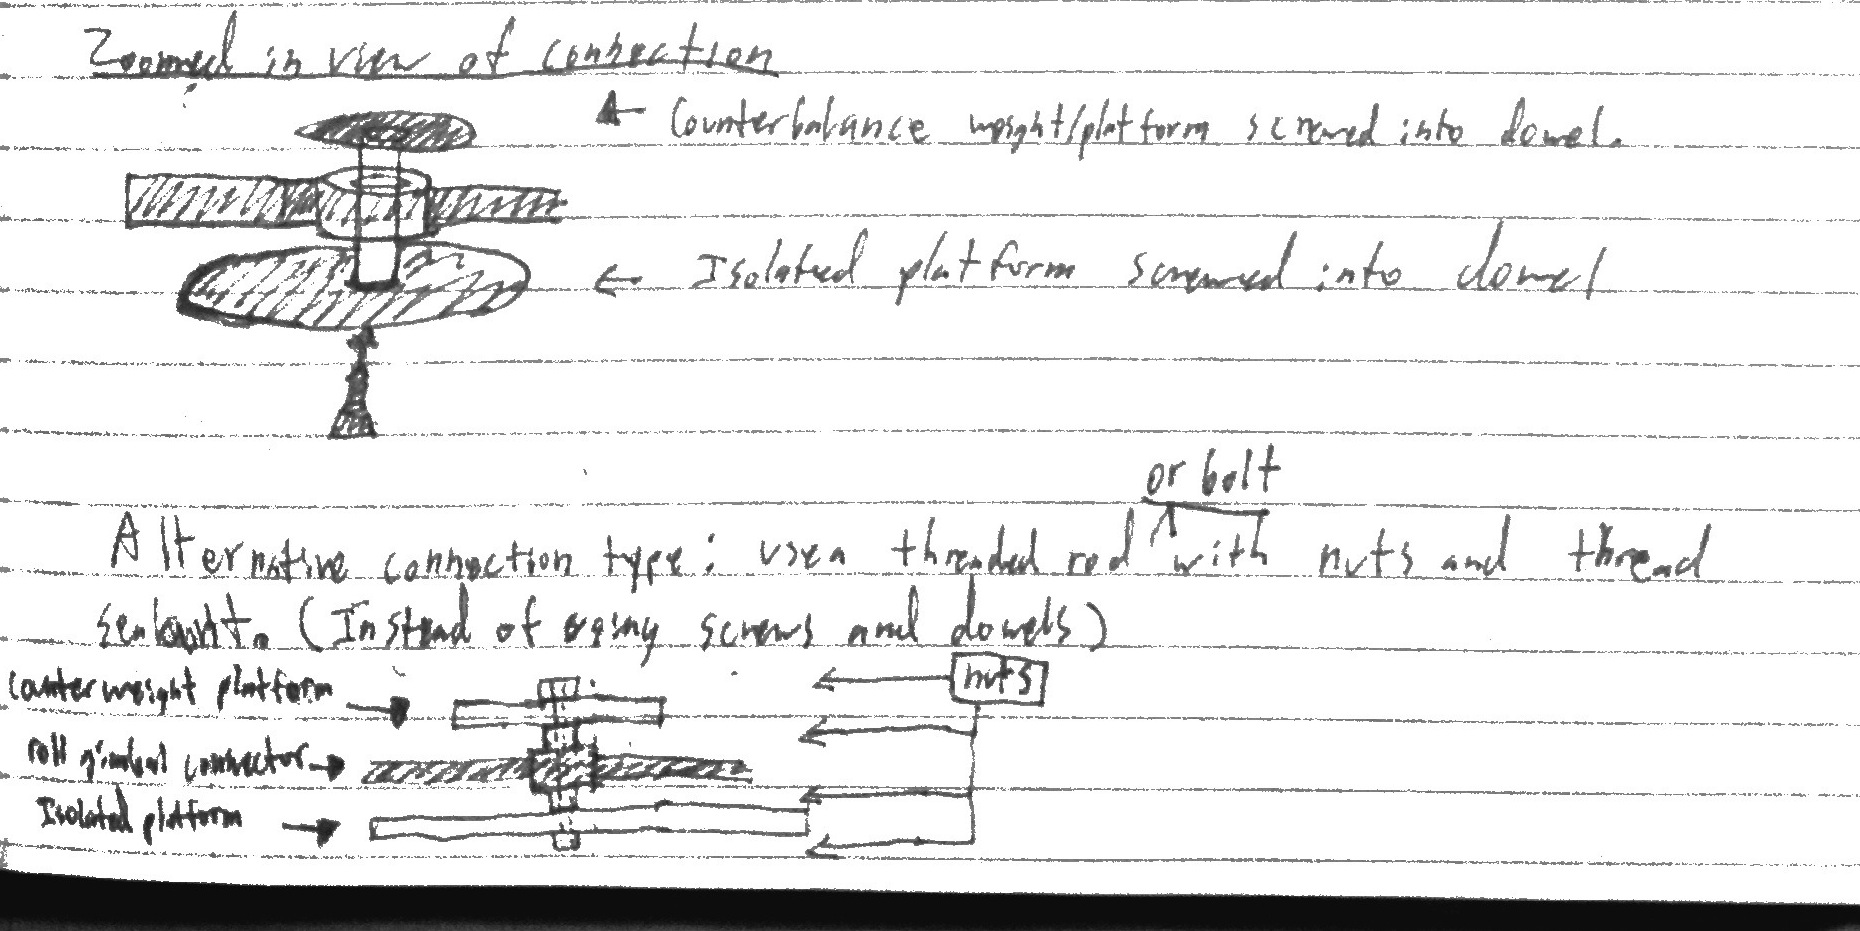 Zoomed in view of connection
← Counterbalance weight/platform screwed into dowel.
← Isolated platform screwed into dowel
or bolt
Alternative connection type: use a threaded rod ^ with nuts and thread
sealant. (Instead of using screws and dowels)
Counterweight platform →
nuts
roll gimbal connector →
Isolated platform →